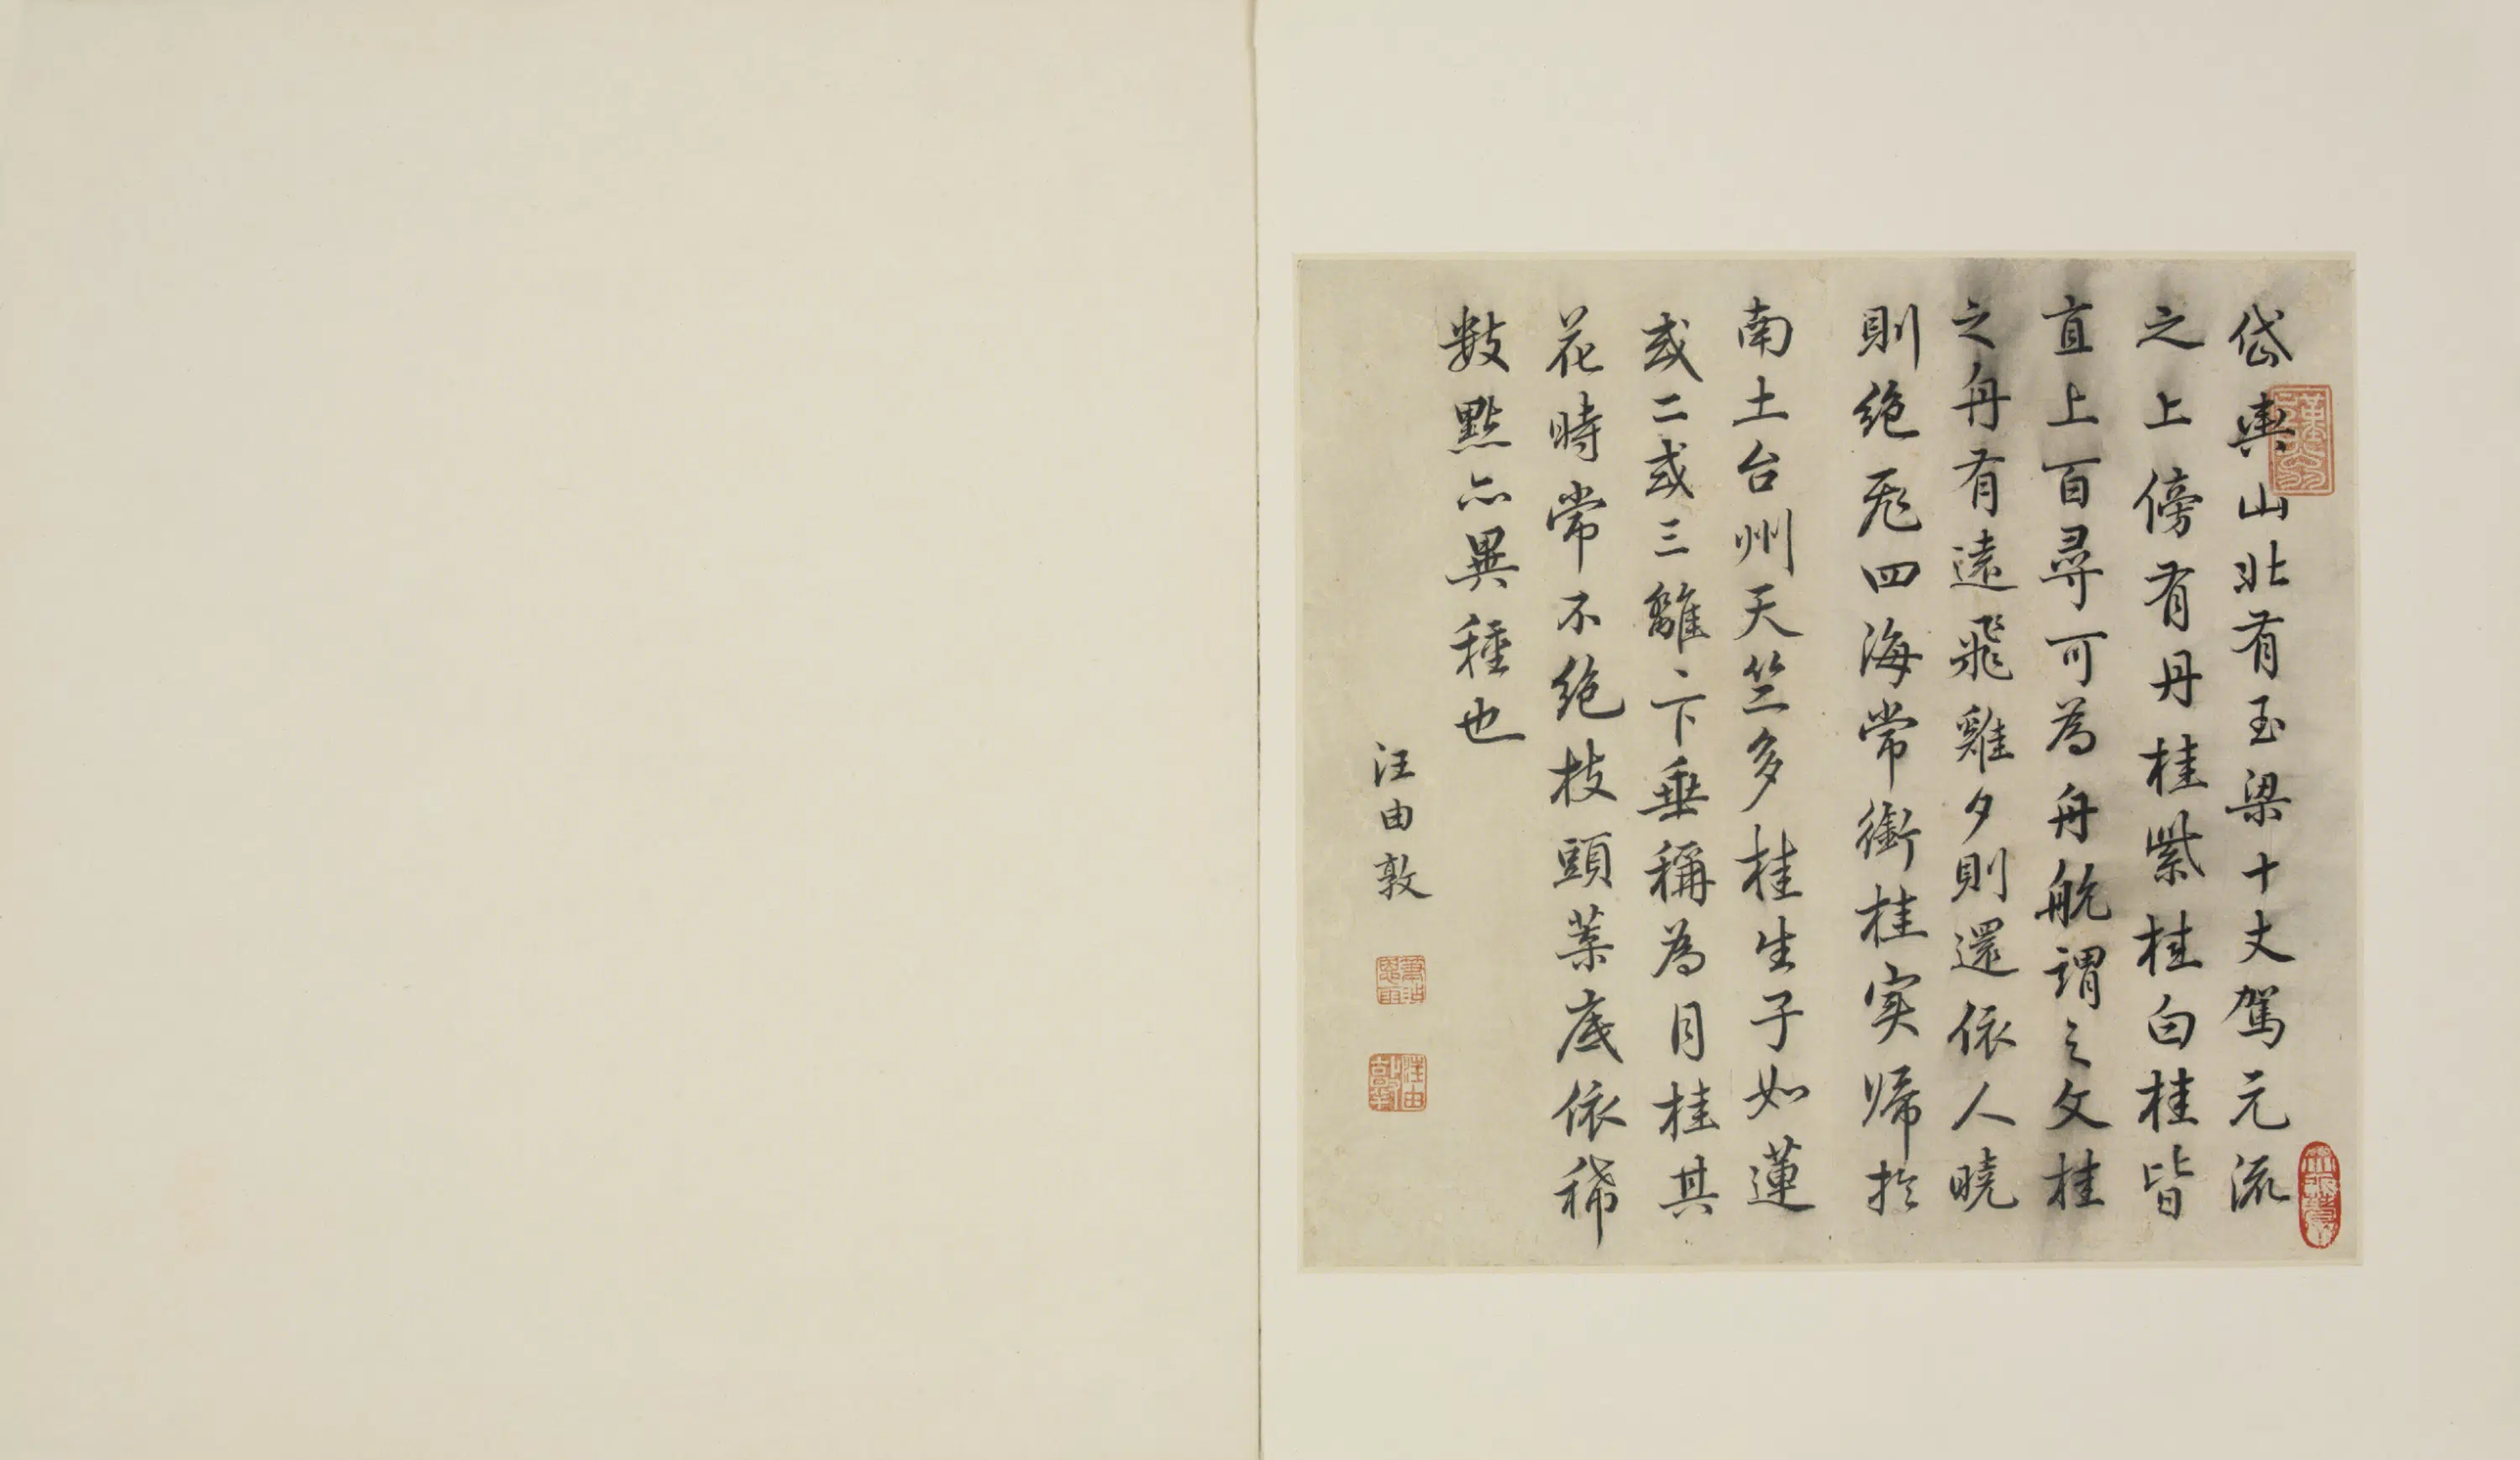 岱輿山北有玉梁十丈駕元流
之上傍有丹桂紫桂白桂皆
直上百尋可為舟航謂之文桂
之舟有遠飛雞夕則還依人曉
則絶飛四海常銜桂实歸於
南土台州天竺多桂生子如蓮
或二或三離〻下垂稱為月桂其
花時常不絶枝頭葉底依稀
數點亦異種也
汪由敦
汪由敦印